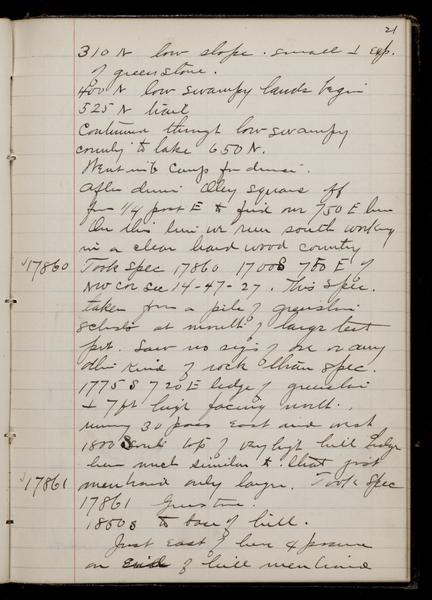 21
310 N low slope. small ⊥ exp.
of greenstone.
400 N low swampy lands begin
525 N trail
Continued through low swampy
country to lake 650 N.
Went into Camp for dinner.
After dinner Olley squares off
from 1/4 post E to find our 750 E line
On this line we run south working
in a clear hard wood country
17860 Took Spec 17860 1700S 750 E of
NW cor sec 14-47-27. This Spec.
taken from a pile of greenston
schists at mouth of large test
pit. Saw no sign of ore or any
other kind of rock than Spec.
1775 S 720 E ledge of greenston
⊥ 7 ft high facing north.
running 30 paces east and west
1800 South top of very high hill Ledge
here much similar to that just
17861 mentioned only larger. Took Spec
17861 Greenstone.
1850s to base of hill.
Just East of here exposure
on of hill mentioned